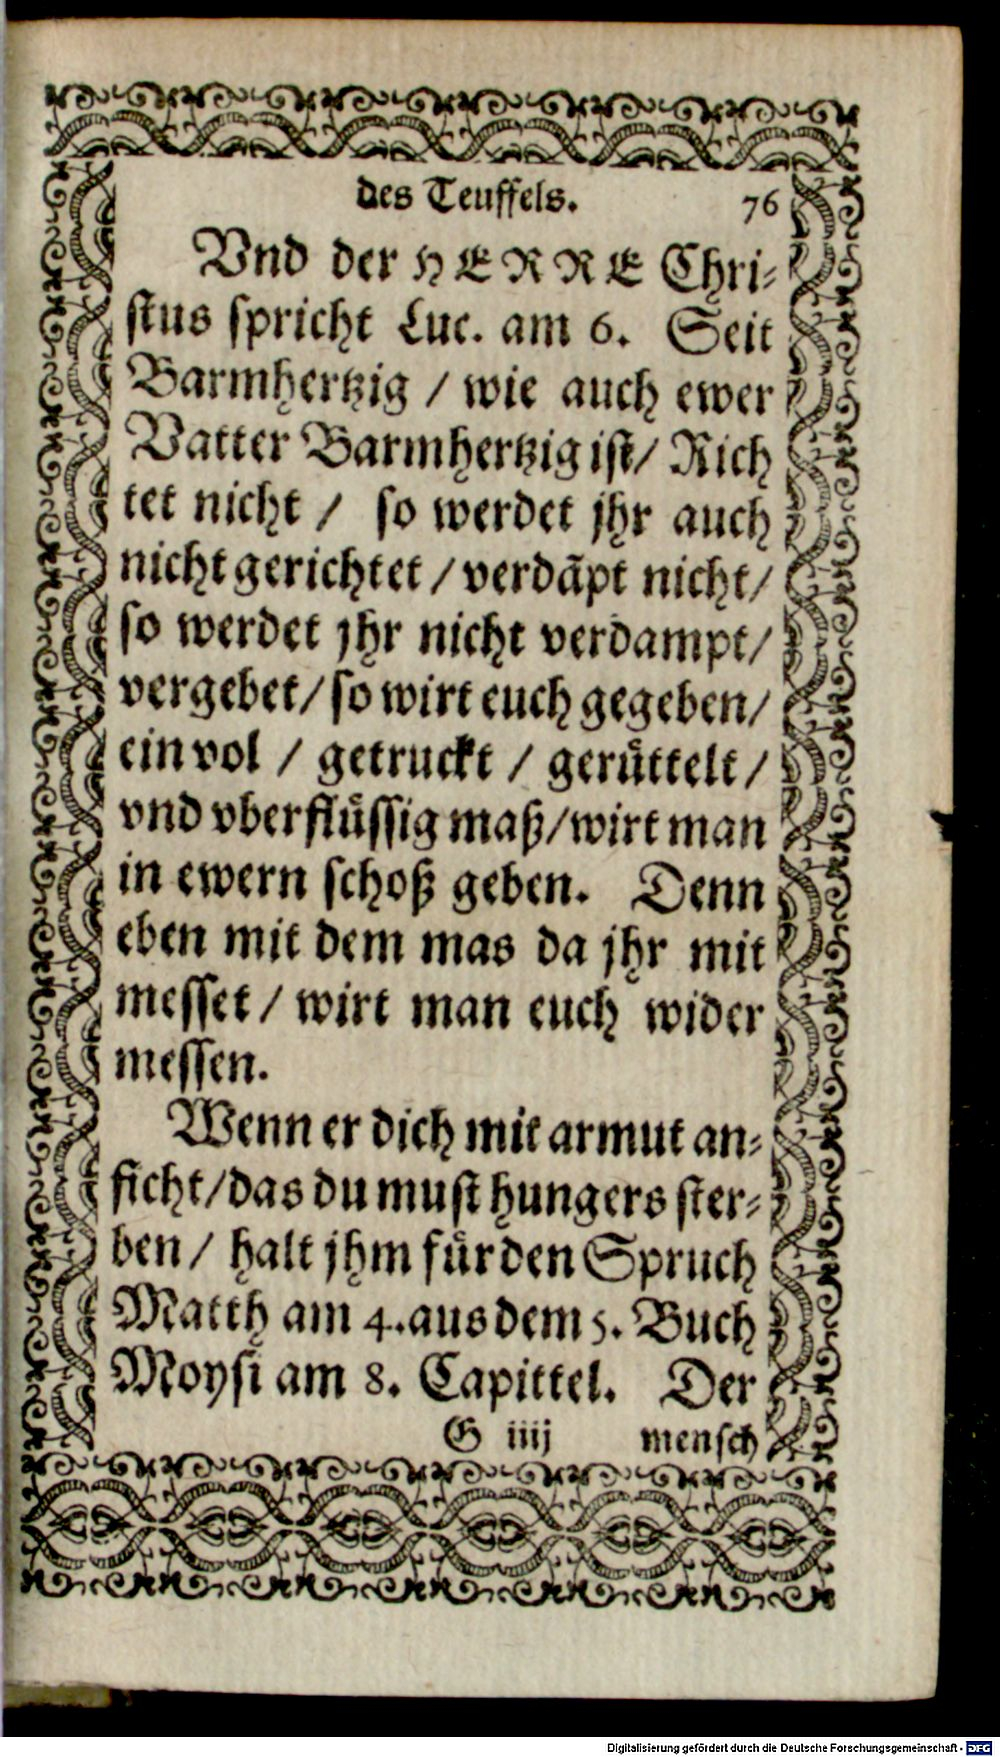 des Teuffels. 76
Vnd der HERRE Chri-
stus spricht Luc. am 6. Seit
Barmhertzig / wie auch ewer
Vatter Barmhertzig ist/ Rich
tet nicht / so werdet jhr auch
nicht gerichtet / verdãpt nicht/
so werdet jhr nicht verdampt/
vergebet/ so wirt euch gegeben/
ein vol / getruckt / gerüttelt /
vnd vberflüssig maß/wirt man
in ewern schoß geben. Denn
eben mit dem mas da jhr mit
messet / wirt man euch wider
messen.
Wenn er dich mit armut an-
ficht/das du must hungers ster-
ben / halt jhm für den Spruch
Matth am 4. aus dem 5. Buch
Moysi am 8. Capittel. Der
G iiij mensch
Digitalisierung gefördert durch die Deutsche Forschungsgemeinschaft - DFG